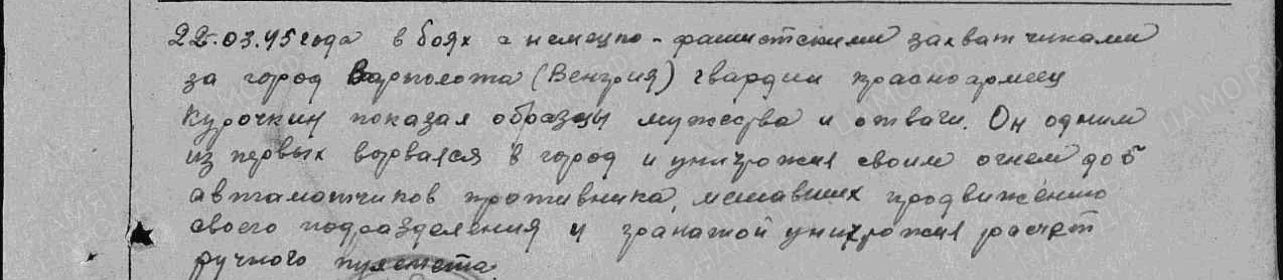 22.03.45 года в боях с немецко-фашистскими захватчиками
за город Варполота (Венгрия) гвардии красноармеец
Курочкин показал образцы мужества и отваги. Он одним
из первых ворвался в город и уничтожил своим огнем до 5
автоматчиков противника, мешавших продвижению
своего подразделения и гранатой уничтожил расчет
ручного пулемета.